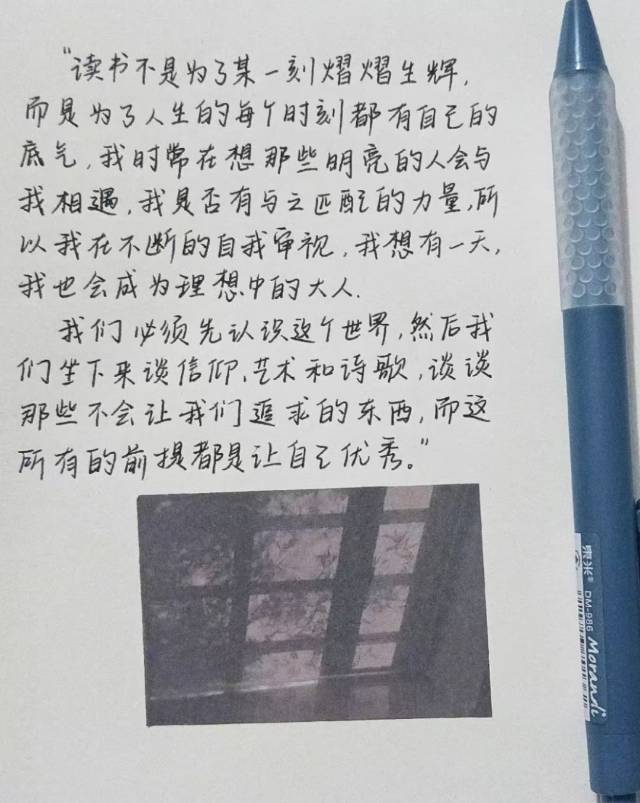 “读书不是为了某一刻熠熠生辉，
而是为了人生的每个时刻都有自己的
底气，我时常在想那些明亮的人会与
我相遇，我是否有与之匹配的力量，所
以我在不断的自我审视，我想有一天，
我也会成为理想中的大人.
我们必须先认识这个世界，然后我
们坐下来谈信仰、艺术和诗歌，谈谈
那些不会让我们追求的东西，而这
所有的前提都是让自己优秀。”
DM-986
Morandi